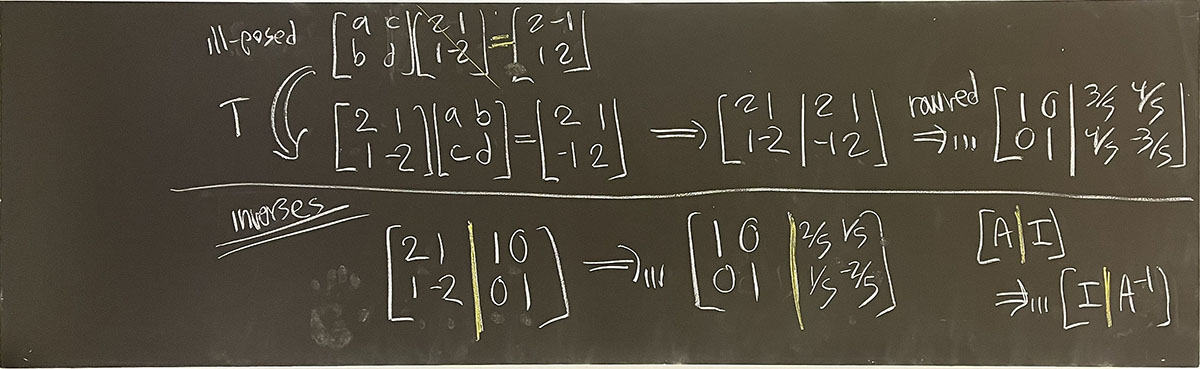 ill-posed [a c; b d][2 1; 1 -2] = [2 -1; 1 2]
T [2 1; 1 -2][a b; c d] = [2 1; -1 2] ⟹ [2 1 | 2 1; 1 -2 | -1 2] rowred ⟹... [1 0 | 3/5 4/5; 0 1 | 4/5 -3/5]
inverses
[2 1 | 1 0; 1 -2 | 0 1] ⟹... [1 0 | 2/5 1/5; 0 1 | 1/5 -2/5] [A|I]
⟹... [I|A⁻¹]